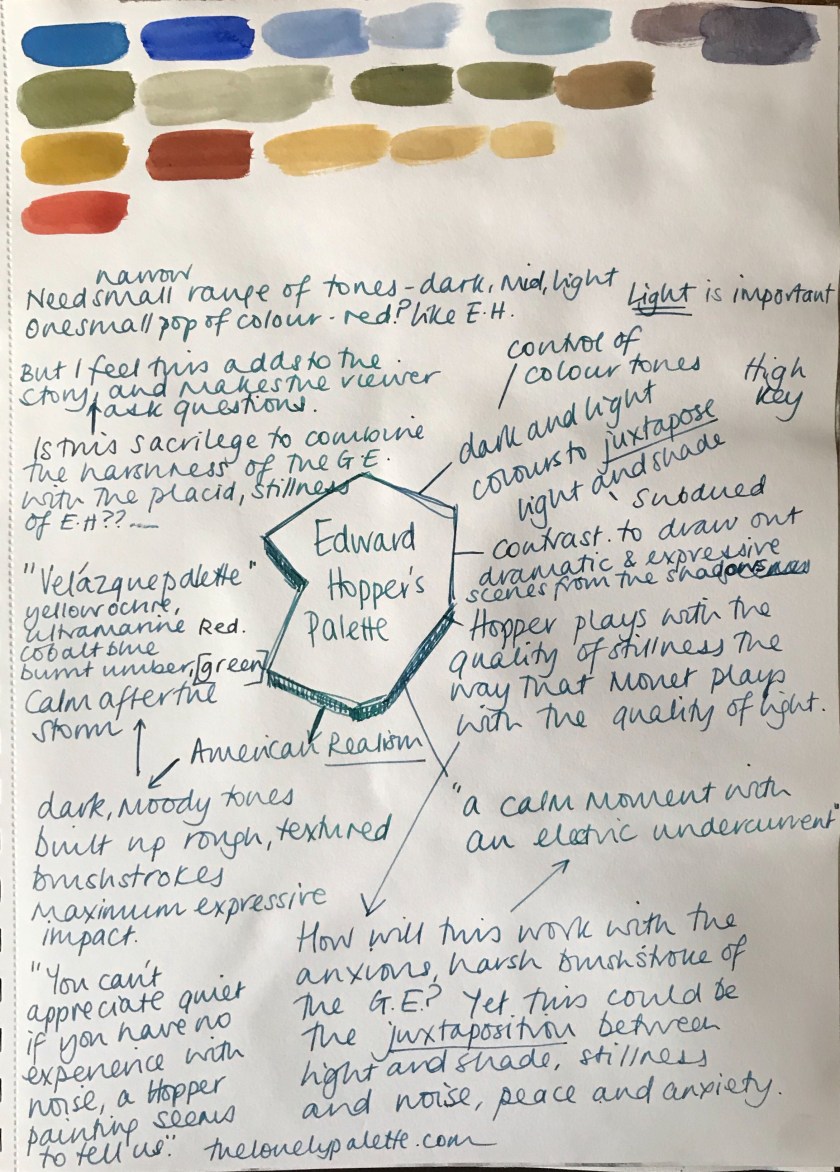 narrow
Need small range of tones - dark, mid, light
One small pop of colour - red? like E.H.
Light is important
But I feel this adds to the
story and makes the viewer
ask questions.
Is this sacrilege to combine
the harshness of the G.E.
with the placid, stillness
of E.H??
control of
colour tones
High
key
dark and light
colours to juxtapose
light and shade
subdued
contrast. to draw out
dramatic & expressive
scenes from the shadows
Edward
Hopper's
Palette
"Velázquepalette"
yellow ochre,
ultramarine Red.
cobalt blue
burnt umber, [green]
Calm after the
storm
Hopper plays with the
quality of stillness the
way that Monet plays
with the quality of light.
American Realism
dark, moody tones
built up rough, textured
brushstrokes
Maximum expressive
impact.
"a calm moment with
an electric undercurrent"
How will this work with the
anxious, harsh brushstroke of
the G.E? Yet this could be
the juxtaposition between
light and shade, stillness
and noise, peace and anxiety.
"You can't
appreciate quiet
if you have no
experience with
noise, a Hopper
painting seems
to tell us."
thelonelypalette.com